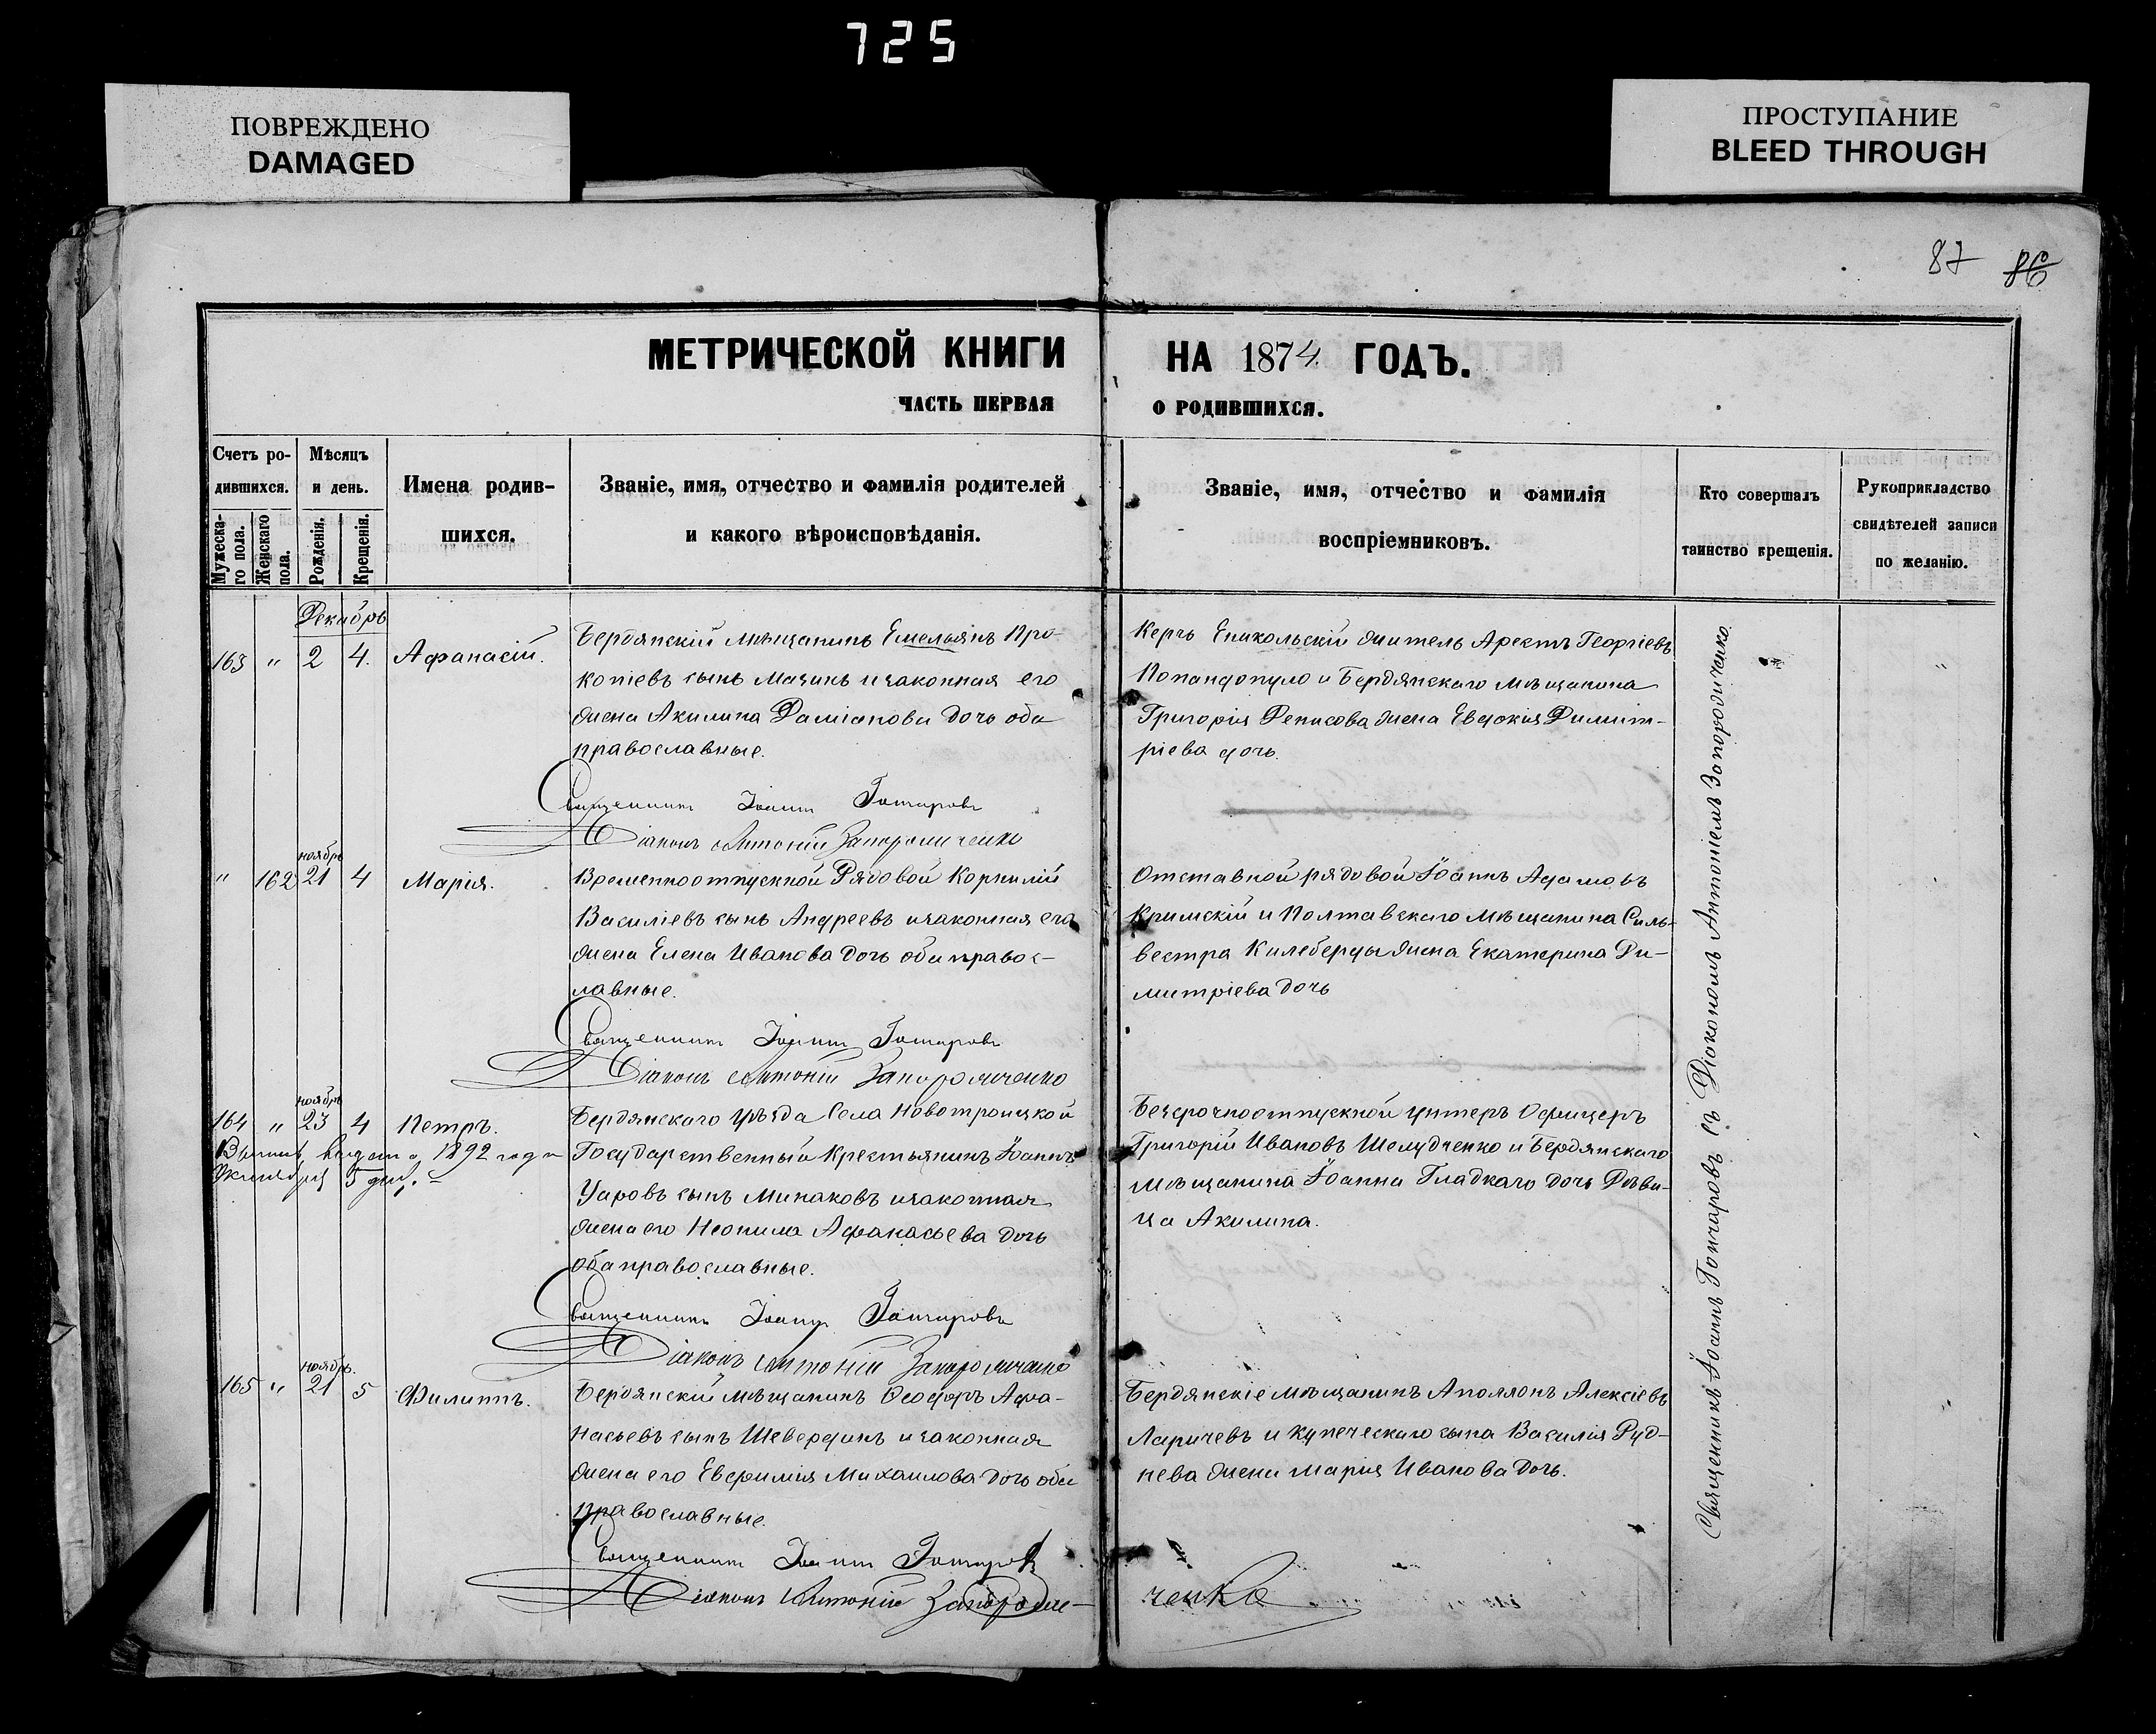 725
ПОВРЕЖДЕНО
DAMAGED
ПРОСТУПАНИЕ
BLEED THROUGH
87 86
МЕТРИЧЕСКОЙ КНИГИ НА 1874 ГОДЪ.
ЧАСТЬ ПЕРВАЯ О РОДИВШИХСЯ.
Счетъ ро-
дившихся.
Мужеска-
го пола.
Женскаго
пола.
Мѣсяцъ
и день.
Рожденія.
Крещенія.
Имена родив-
шихся.
Званіе, имя, отчество и фамилія родителей
и какого вѣроисповѣданія.
Званіе, имя, отчество и фамилія
воспріемниковъ.
Кто совершалъ
таинство крещенія.
Рукоприкладство
свидѣтелей записи
по желанію.
Декабрь
163 " 2 4. Афанасій.
Бердянскій мѣщанинъ Емельянъ Про-
копіевъ сынъ Мазинъ и законная его
жена Акилина Даміанова дочь оба
православные.
Керчь Еникольскій житель Арестъ Георгіевъ
Попандопуло и Бердянскаго мѣщанина
Григорія Денисова жена Евдокія Димит-
ріева дочь.
Священникъ Іоаннъ Гончаровъ
Діаконъ Антоній Запорожченко
ноябрь
" 162 21 4 Марія.
Временноотпускной Рядовой Корнилій
Василіевъ сынъ Андреевъ и законная его
жена Елена Иванова дочь оба правос-
лавные.
Отставной рядовой Іоаннъ Адамовъ
Кримскій и Полтавскаго мѣщанина Силь-
вестра Килеберды жена Екатерина Ди-
митріева дочь
Священникъ Іоаннъ Гончаровъ
Діаконъ Антоній Запорожченко
ноябрь
164 " 23 4 Петръ.
1892 года
5 дня.
Бердянскаго уѣзда Села Новотроицкой
Государственный Крестьянинъ Іоаннъ
Уаровъ сынъ Минаковъ и законная
жена его Неонила Афанасьева дочь
оба православные.
Безсрочноотпускной унтеръ Офицеръ
Григорій Ивановъ Шелудченко и Бердянскаго
мѣщанина Іоанна Гладкаго дочь Дѣви-
ца Акилина.
Священникъ Іоаннъ Гончаровъ
Діаконъ Антоній Запорожченко
ноябрь.
165 " 21 5 Филиппъ.
Бердянскій мѣщанинъ Ѳеодоръ Афа-
насьевъ сынъ Шевердинъ и законная
жена его Евфимія Михаилова дочь оба
православные.
Бердянскіе мѣщанинъ Аполлонъ Алексіевъ
Ларичевъ и купеческаго сына Василія Руд-
нева жена Марія Иванова дочь.
Священникъ Іоаннъ Гончаровъ
Діаконъ Антоній Запорож-
ченко
Священникъ Іоаннъ Гончаровъ съ Діакономъ Антоніемъ Запорожченко.